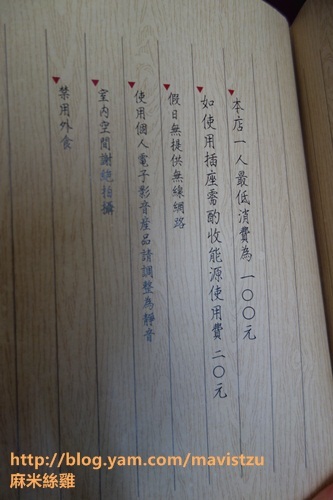 本店一人最低消費為 一〇〇元
如使用插座需酌收能源使用費 二〇元
假日無提供無線網路
使用個人電子影音產品請調整為靜音
室內空間謝絕拍攝
禁用外食
http://blog.yam.com/mavistzu
麻米絲雞